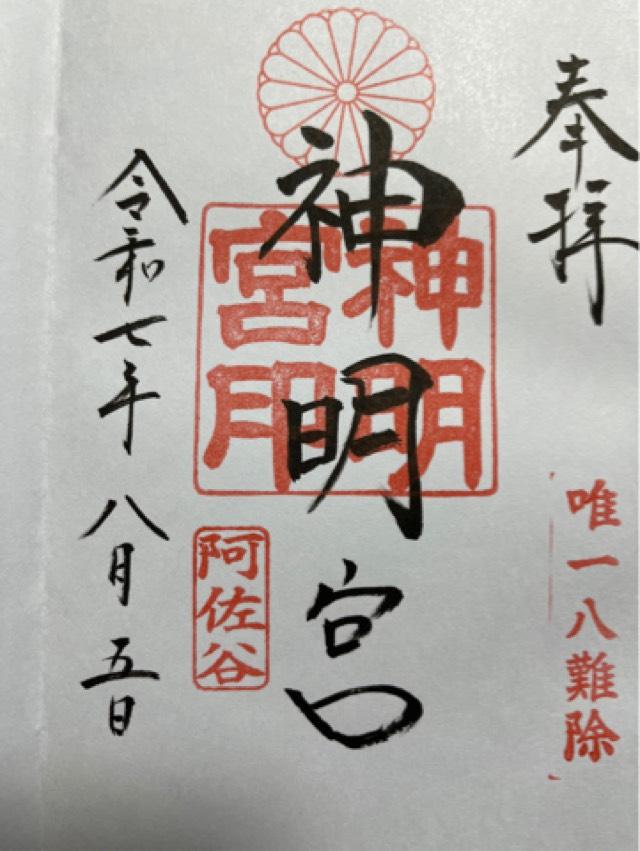 奉拝
唯一八難除
神明宮
神明
宮印
阿佐谷
令和七年八月五日